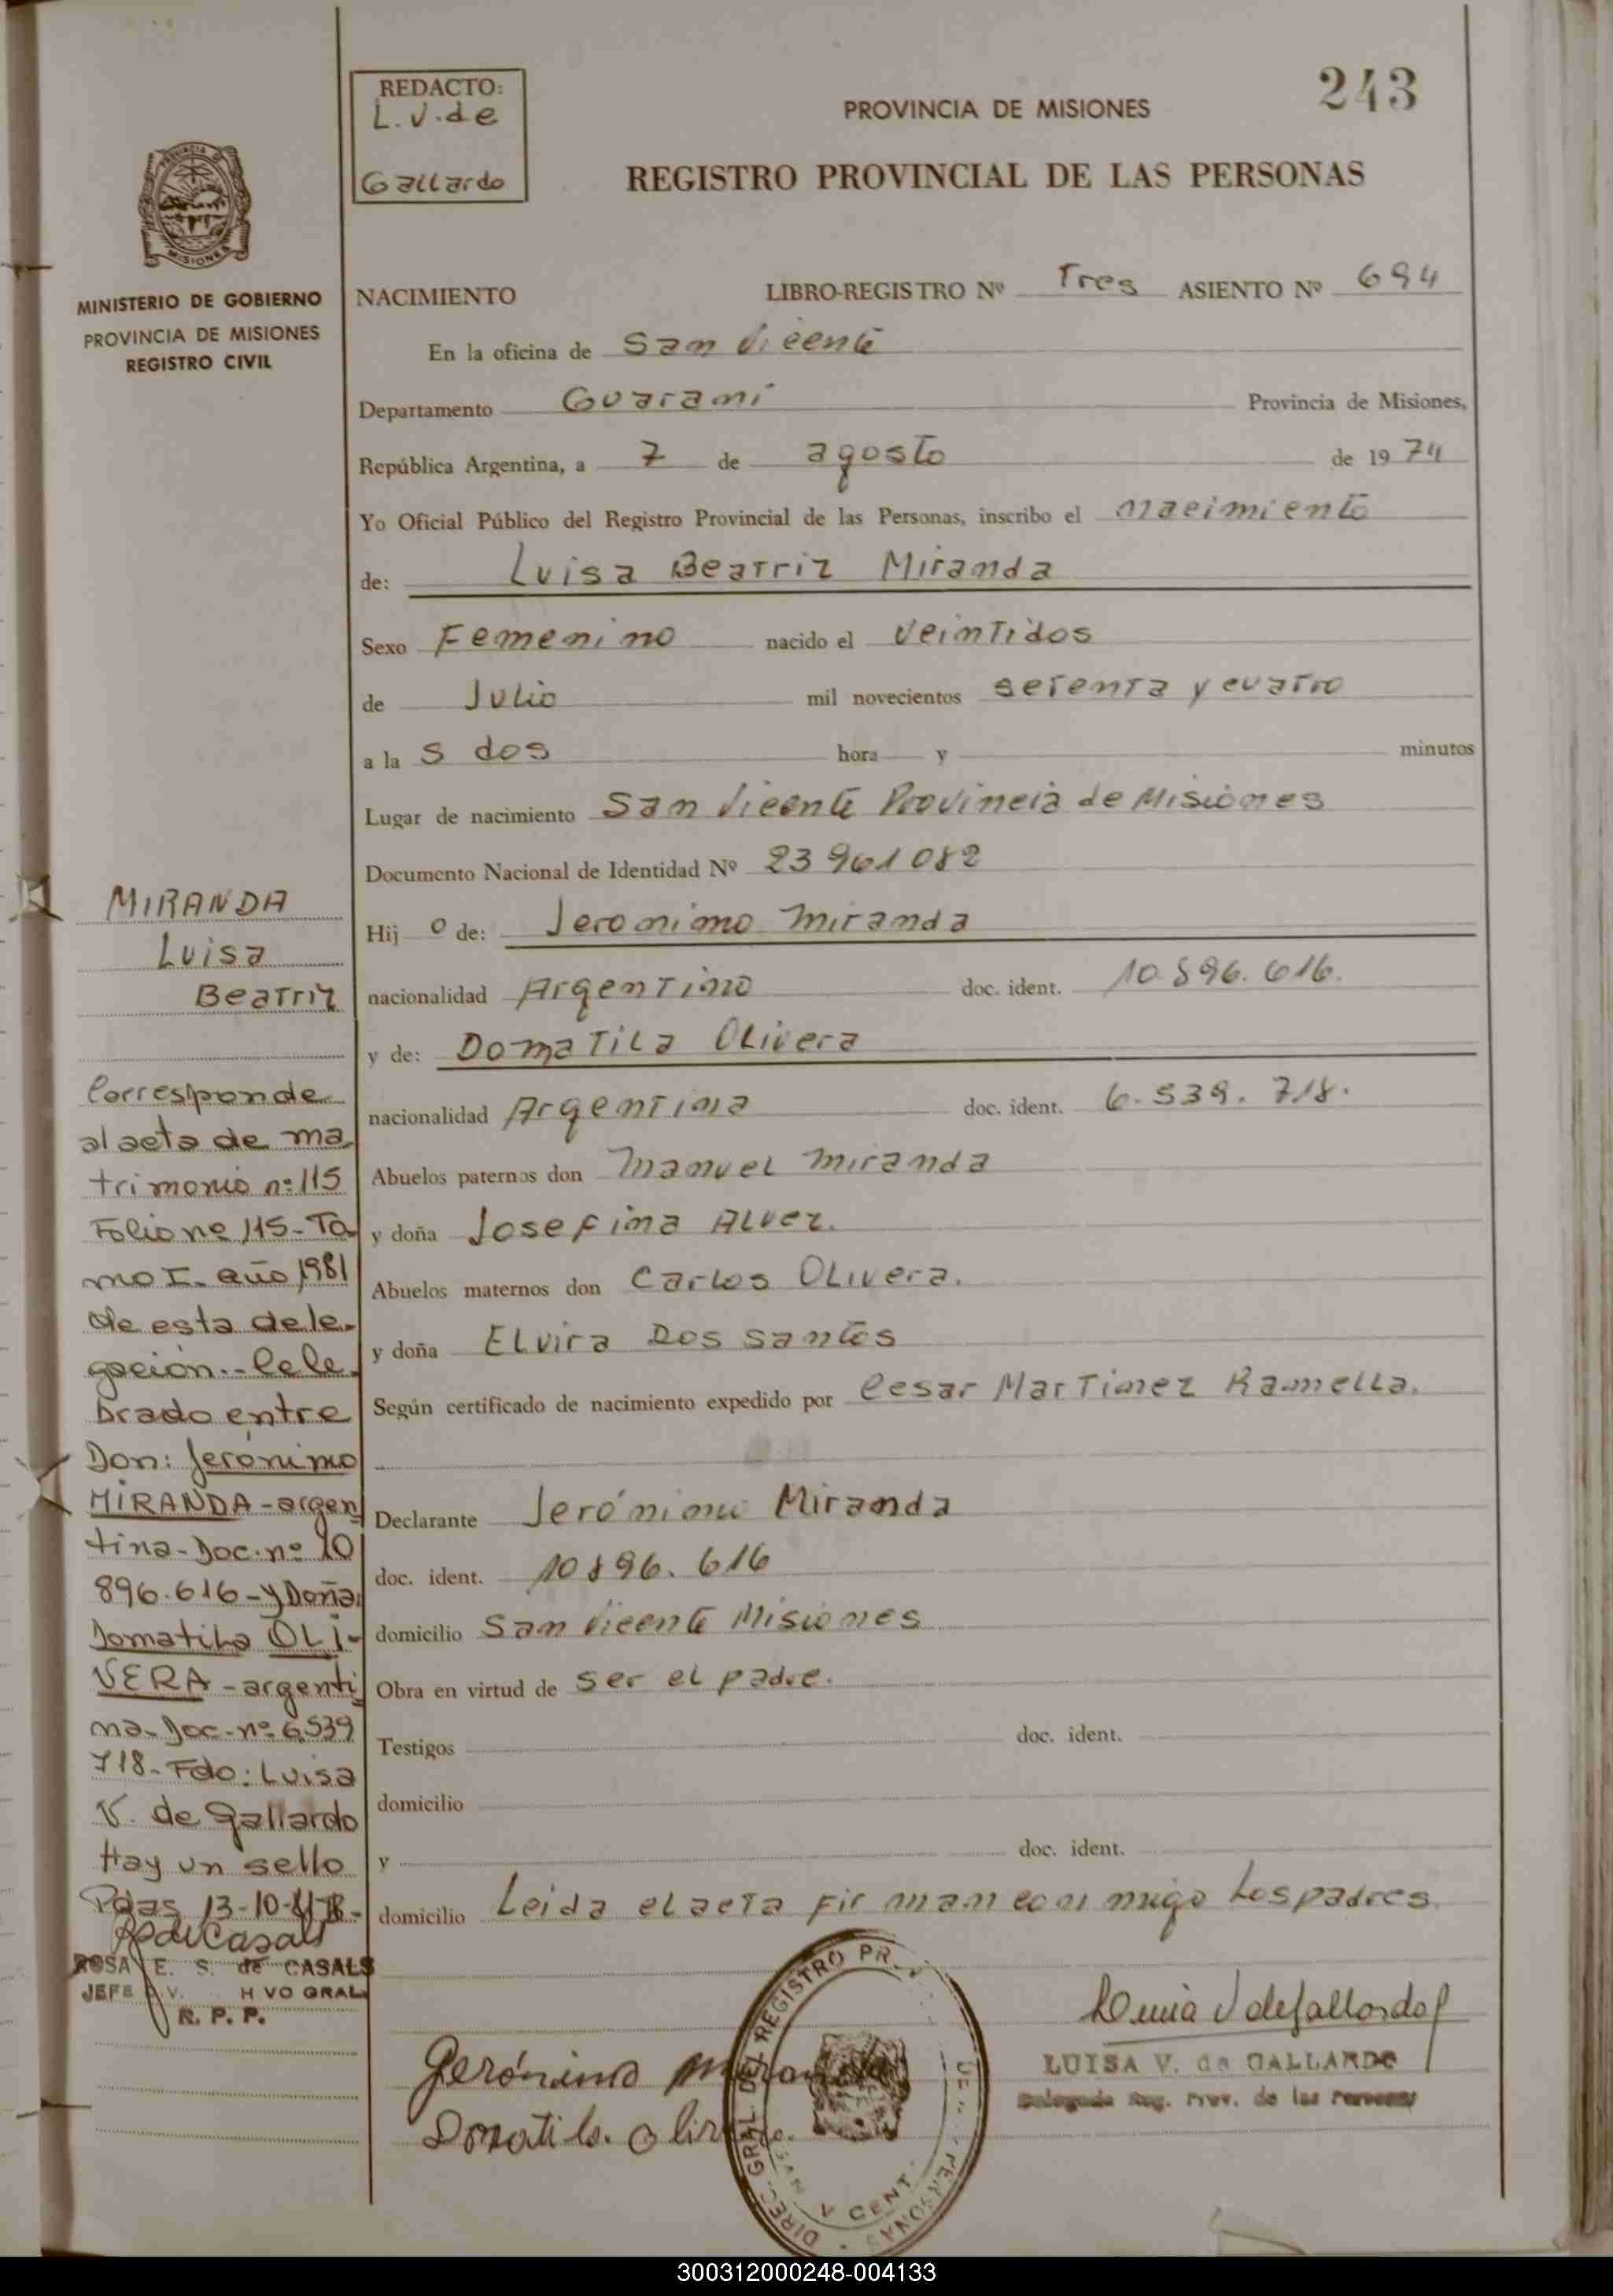 243
REDACTO:
L.V.de
Gallardo
PROVINCIA DE MISIONES
REGISTRO PROVINCIAL DE LAS PERSONAS
MISIONES
MINISTERIO DE GOBIERNO
PROVINCIA DE MISIONES
REGISTRO CIVIL
NACIMIENTO LIBRO-REGISTRO Nº Tres ASIENTO Nº 694
En la oficina de San Vicente
Departamento Guaraní Provincia de Misiones,
República Argentina, a 7 de agosto de 1974
Yo Oficial Público del Registro Provincial de las Personas, inscribo el nacimiento
de: Luisa Beatriz Miranda
Sexo Femenino nacido el veintidos
de Julio mil novecientos setenta y cuatro
a la s dos hora y minutos
Lugar de nacimiento San Vicente Provincia de Misiones
Documento Nacional de Identidad Nº 23961082
Hij o de: Jeronimo Miranda
nacionalidad Argentino doc. ident. 10.896.616.
y de: Domatila Olivera
nacionalidad Argentina doc. ident. 6.539.718.
Abuelos paternos don Manuel Miranda
y doña Josefina Alvez.
Abuelos maternos don Carlos Olivera.
y doña Elvira Dos Santos
Según certificado de nacimiento expedido por Cesar Martinez Ramella.
Declarante Jerónimo Miranda
doc. ident. 10896.616
domicilio San Vicente Misiones
Obra en virtud de ser el padre.
Testigos doc. ident.
domicilio
y doc. ident.
domicilio Leida el acta firman conmigo Los padres
MIRANDA
Luisa
Beatriz
Corresponde
al acta de ma
trimonio nº 115
Folio nº 115-To
mo I. año 1981
de esta dele-
gación.-Cele
brado entre
Don: Jerónimo
MIRANDA-argen
tina-Doc.nº 10
896.616-y Doña
Domatila OLI-
VERA-argenti
na-Doc-nº 6539
718-Fdo: Luisa
V. de Gallardo
Hay un sello
Pdas 13-10-
ROSA E. S. de CASALS
JEFE
R. P. P.
Gerónimo Miranda
Domatila. Olivera.
DIREC. GRAL. DEL REGISTRO
PERSONAS
LUISA V. de GALLARDO
Delegada Reg. Prov. de las Personas
300312000248-004133